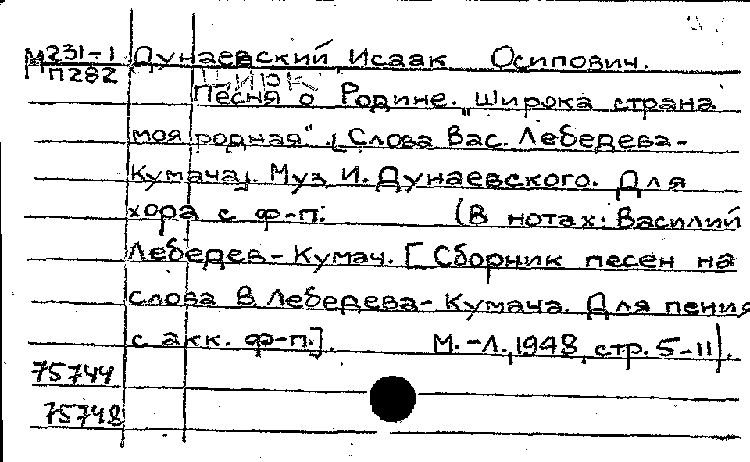 М231-1 Дунаевский, Исаак Осипович.
П282
Песня о Родине. „Широка страна
моя родная". [Слова Вас. Лебедева-
Кумача]. Муз. И. Дунаевского. Для
хора с ф-п. (В нотах: Василий
Лебедев-Кумач. [Сборник песен на
слова В. Лебедева-Кумача. Для пения
с акк. ф-п.]. М.-Л., 1948, стр. 5-11).
75744
75748